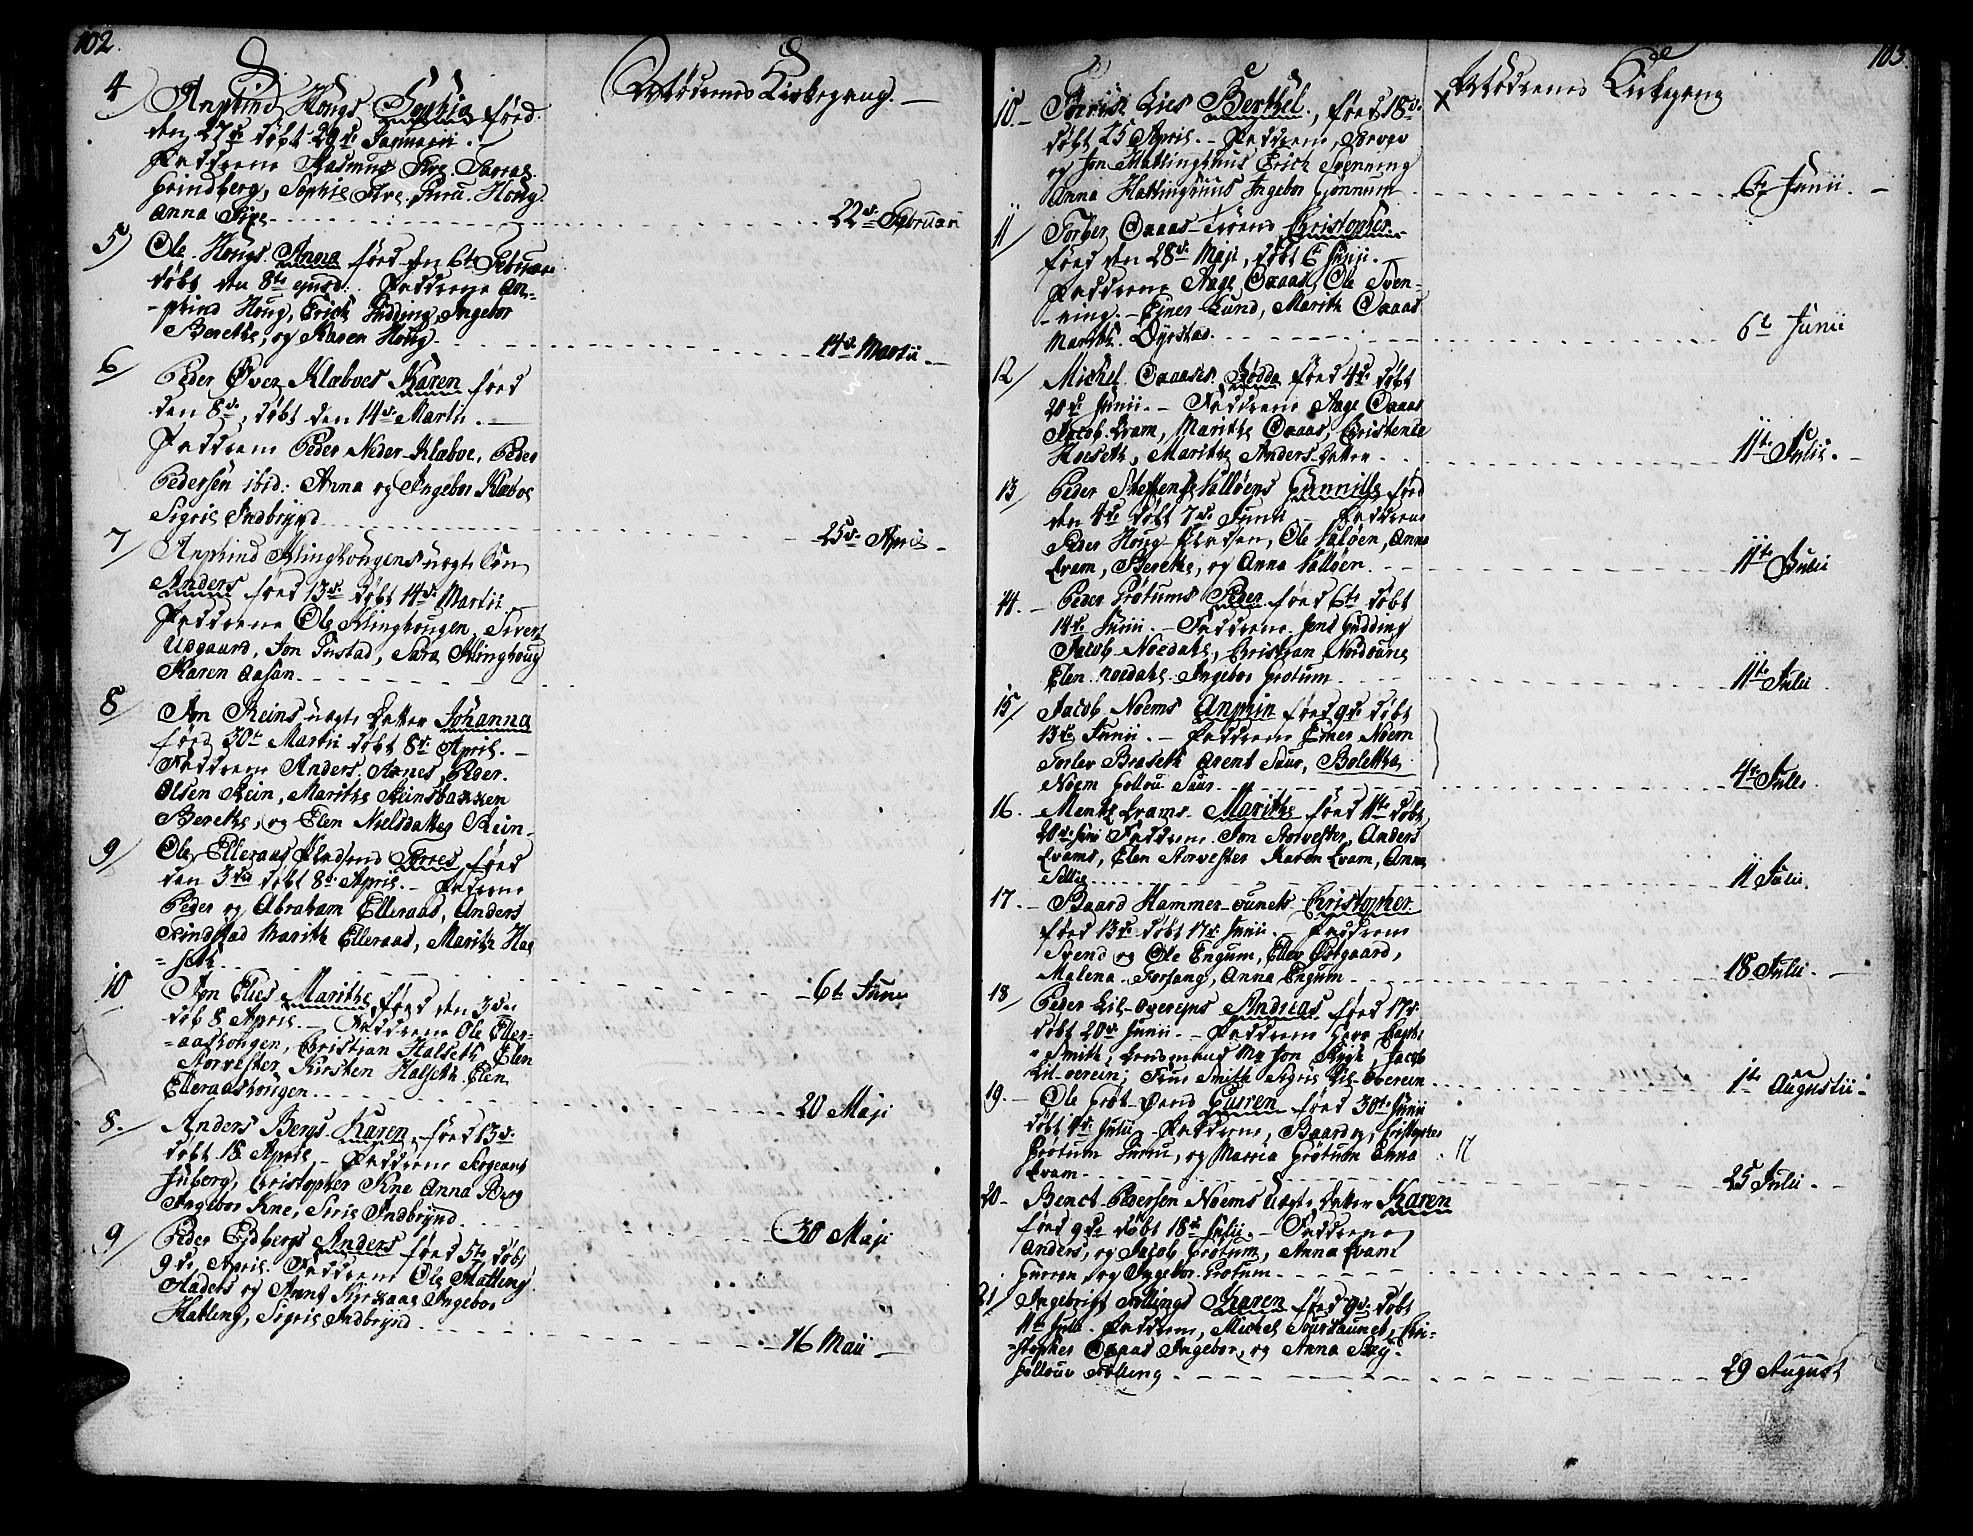 102.
Mødrenes Kirkegang.
4/ Anphind Hougs Sophia fød
den 27de døbt 29de Januarii.
Fadderne Rasmus
Grindberg, Sophie Houg.
Anna
22de Februarii
5/ Ole Hougs Anna fød den 6te Februar
døbt den 8de ejusd. Fadderne An-
-phind Houg, Erich Gudding, Ingebor
Berethe, og Karen Houg.
14de Martii
6/ Peder Øver Klæboes Karen fød
den 8de, døbt den 14de Martii.
Fadderne Peder Neder-Klæboe, Peder
Pedersen ibid: Anna og Ingebor Klæboe
Sigris Indbrynd
25de April
7/ Anphind Klinghougens uægte Søn
Anders fød 13de døbt 14de Martii.
Fadderne Ole Klinghougen, Sivert
Udgaard, Jon Tustad, Sara Klinghoug
Karen Aasan
8/ Jon Reins uægte Datter Johanna
fød 30te Martii døbt 8de April.
Fadderne Anders Peder
Olsen Rein, Marithe Reinsbakken
Berethe, og Elen Nielsdatter Rein.
9/ Ole Elleraas Pladsens fød
den 3die døbt 8de April. Fadderne
Peder og Abraham Elleraas, Anders
Tindstad Marith Elleraas, Marith Hal
-seth
10. Jon Elies Marithe fød den 3die
døb 8 April. Fadderne Ole Eller-
-aashougen, Christian Halseth, Elen
Storvesten Kirsten Halseth Elen
Elleraashougen
6te Junii
20 Maji
8. Anders Bergs Karen, fød 13de
døbt 18 April. Fadderne Sergeant
Juberg, Christopher Kne Anna Berg
Ingebor Kne, Siris Indbrynd
30 Maji
9/ Peder Eidbergs Anders fød 5te døbt
9de April. Fadderne Ole Hatling
Anders og
Hatling, Sigris Indbrynd
16 Maii
103.
Mødrenes Kirkegang
10. Lies Berthel, fød 18de
døbt 25 April. Fadderne
og Jon Hallinghuus Erich Svenning
Anna Hallinghuus Ingebor
6te Junii.
11/ Torber Oaaas Søns Christopher
fød den 28de Maji, døbt 6te Junii.
Fadderne Aage Oaaas, Ole Sven-
-ning. Ejner Lund, Marith Oaaas
Marith Dyrstad.
6te Junii
12/ Michel Oaaases fød 4de døbt
20de Junii. Fadderne Aage Oaaas
Jacob Kvam, Marithe Oaaas, Christence
Hoeseth, Marithe Andersdatter
11te Julii.
13/ Peder Steffens Valløens Gunnilde fød
den 4de døbt 7de Junii Fadderne
Peder Houg-Pladsen, Ole Valøen, Anna
Kvam, Berethe, og Anna Valløen.
11te Julii
14. Peder Grøtums Peder fød 6te døbt
14de Junii. Fadderne Jens Gudding
Jacob Noedahl, Christian Nordvang
Elen Noedahl Ingebor Grøtum
11te Julii
15/ Jacob Noems Anphin fød 9de døbt
13de Junii. Fadderne Einer Noem
Torlev Braseth Arent Suur, Bolettha
Noem Gollou Suur
4de Julii
16. Mentz Kvams Marithe fød 11te døbt
20de Juni Fadderne Jon Storvesten, Anders
Kvams, Elen Storvesten Karen Kvam, Anna
Sellie
11 Julii.
17. Baard Hammer-ounets Christopher
fød 13de døbt 17de Junii. Fadderne
Svend og Ole Engum, Ellev Østgaard,
Malena Forfang, Anna Engum
18 Julii.
18/ Peder Lil-Overeins Andreas fød 17de
døbt 20de Junii. Fadderne Herr
Smith, Lensmand Mr Jon Rygh, Jacob
Lil-overein; Frue Smith Sigris Lil-Overein
1te Augustii
19. Ole Gurren fød 30te Junii
døbt 4de Julii Fadderne, Baard og Cristopher
Grøtum Guru, og Marria Grøtum Anna
Kvam
25 Julii.
20. Benct Pedersen Noems uægte Datter Karen
fød 9de døbt 18de Julii. Fadderne
Anders, og Jacob Grøtum, Anna Kvam
Gurren, og Ingebor Grøtum
21/ Ingebrigt Follings Karen fød 9de døbt
11te Julii. Fadderne, Michel Suursaunet, Cri-
-stopher Oaaas Ingebor, og Anna
Gollouv Følling
29 August